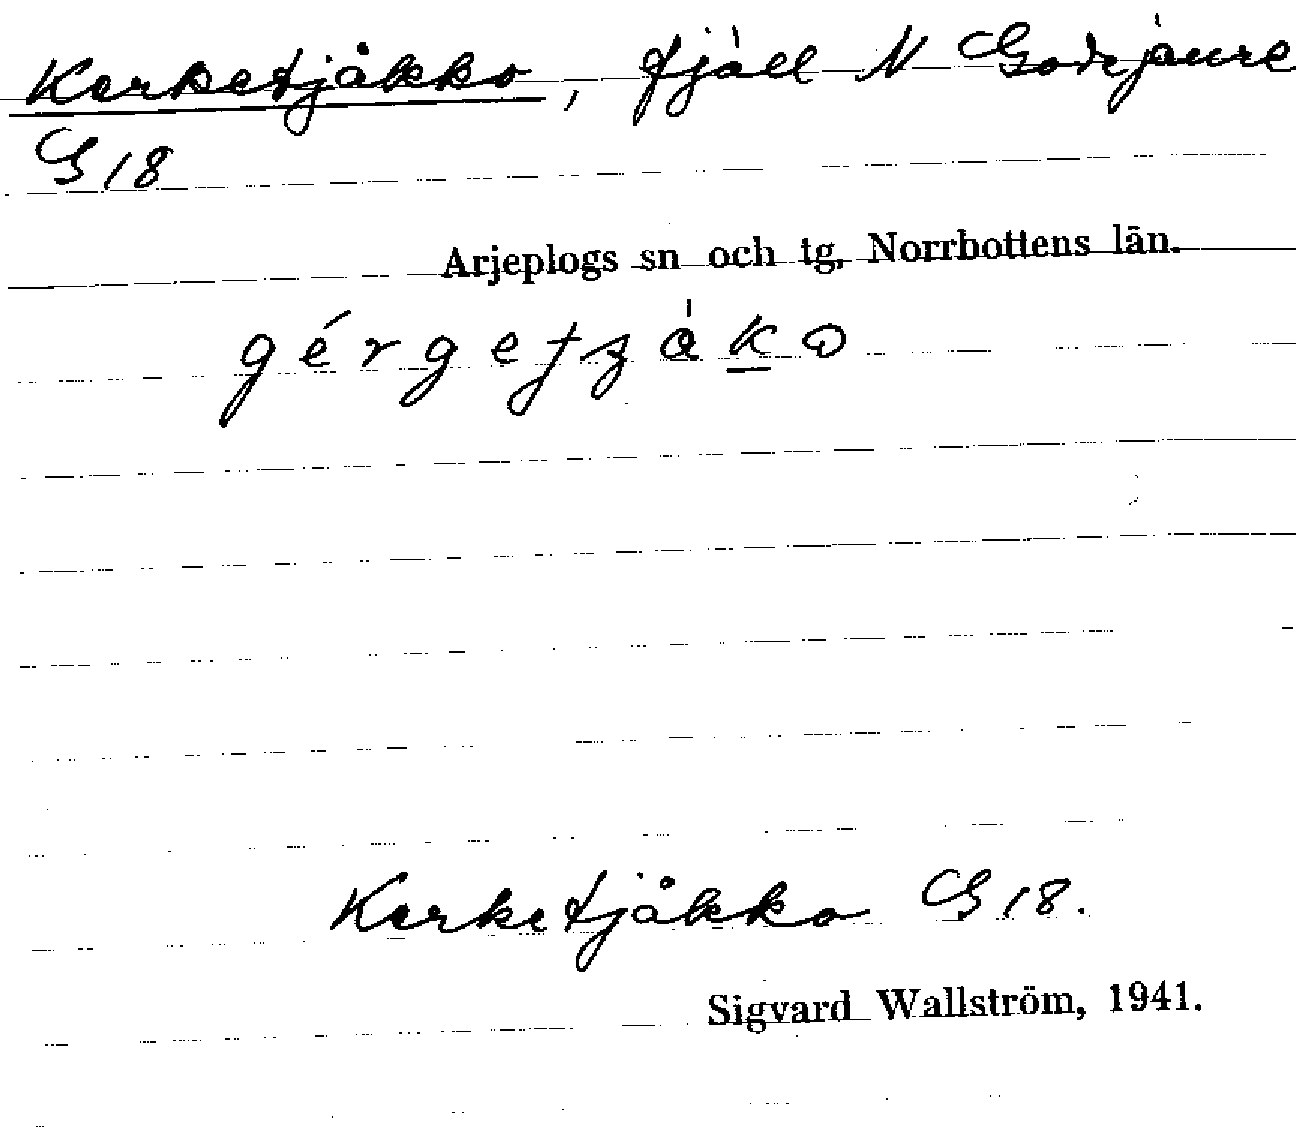 Kerketjåkko, fjäll N Godejaure
G 18
Arjeplogs sn och tg, Norrbottens län.
Kerketjåkko G 18.
Sigvard Wallström, 1941.